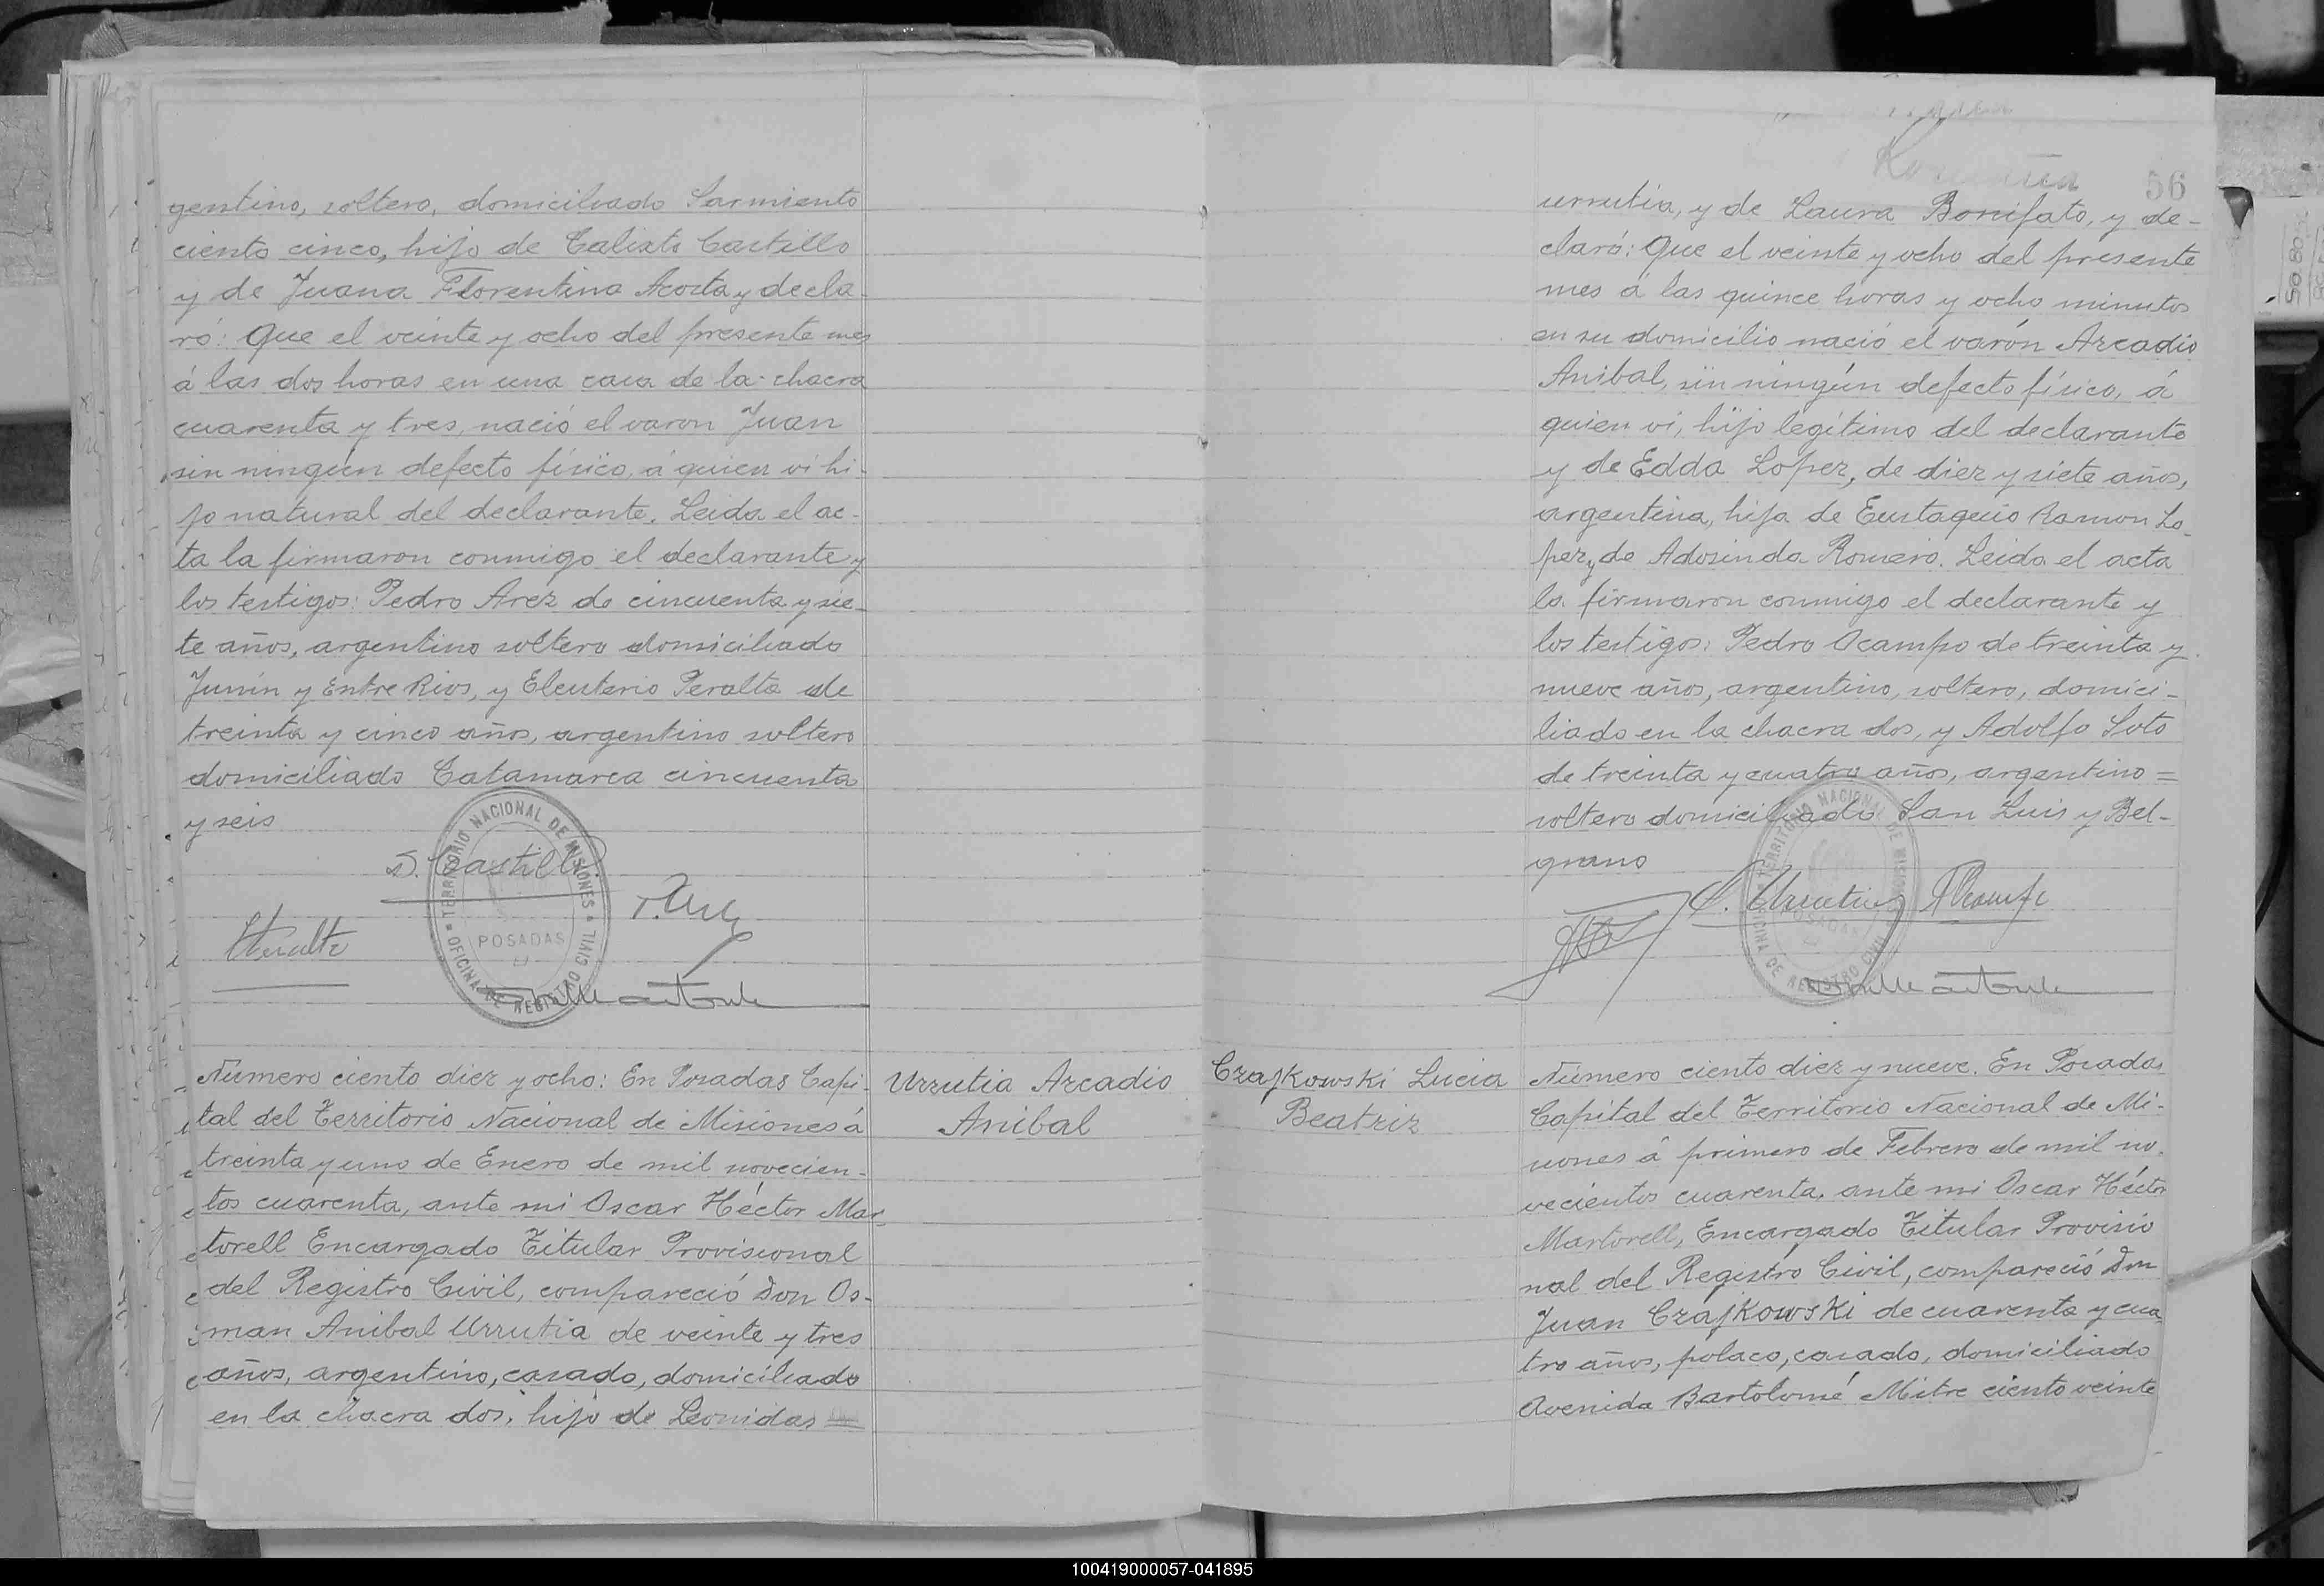 gentino, soltero, domiciliado Sarmiento
ciento cinco, hijo de Calixto Castillo
y de Juana Florentina Acosta y decla-
ró: Que el veinte y ocho del presente mes
á las dos horas en una casa de la chacra
cuarenta y tres, nació el varon Juan
sin ningún defecto físico, á quien vi hi-
jo natural del declarante. Leida el ac-
ta la firmaron conmigo el declarante y
los testigos: Pedro Arez de cincuenta y sie-
te años, argentino soltero domiciliado
Junín y Entre Rios, y Eleuterio Peralta de
treinta y cinco años, argentino soltero
domiciliado Catamarca cincuenta
y seis
TERRITORIO NACIONAL DE MISIONES
OFICINA DE REGISTRO CIVIL
POSADAS
Castillo
EPeralta
Número ciento diez y ocho: En Posadas Capi-
tal del Territorio Nacional de Misiones á
treinta y uno de Enero de mil novecien-
tos cuarenta, ante mi Oscar Héctor Mar-
torell Encargado Titular Provisional
del Registro Civil, compareció Don Os-
man Anibal Urrutia de veinte y tres
años, argentino, casado, domiciliado
en la chacra dos, hijo de Leonidas =
Urrutia Arcadio
Anibal
56
urrutia, y de Laura Bonifato, y de-
claró: Que el veinte y ocho del presente
mes á las quince horas y ocho minutos
en su domicilio nació el varón Arcadio
Anibal, sin ningún defecto físico, á
quien vi, hijo legítimo del declarante
y de Edda Lopez, de diez y siete años,
argentina, hija de Eustaquio Ramon Lo-
pez y de Adosinda Romero. Leida el acta
la firmaron conmigo el declarante y
los testigos: Pedro Ocampo de treinta y
nueve años, argentino, soltero, domici-
liado en la chacra dos, y Adolfo Soto
de treinta y cuatro años, argentino =
soltero domiciliado San Luis y Bel-
grano
TERRITORIO NACIONAL DE MISIONES
OFICINA DE REGISTRO CIVIL
POSADAS
O. Urrutia
POcampo
Czajkowski Lucia
Beatriz
Número ciento diez y nueve. En Posadas
Capital del Territorio Nacional de Mi-
siones á primero de Febrero de mil no-
vecientos cuarenta, ante mi Oscar Héctor
Martorell, Encargado Titular Provisio
nal del Registro Civil, compareció Don
Juan Czajkowski de cuarenta y cua-
tro años, polaco, casado, domiciliado
Avenida Bartolomé Mitre ciento veinte
100419000057-041895